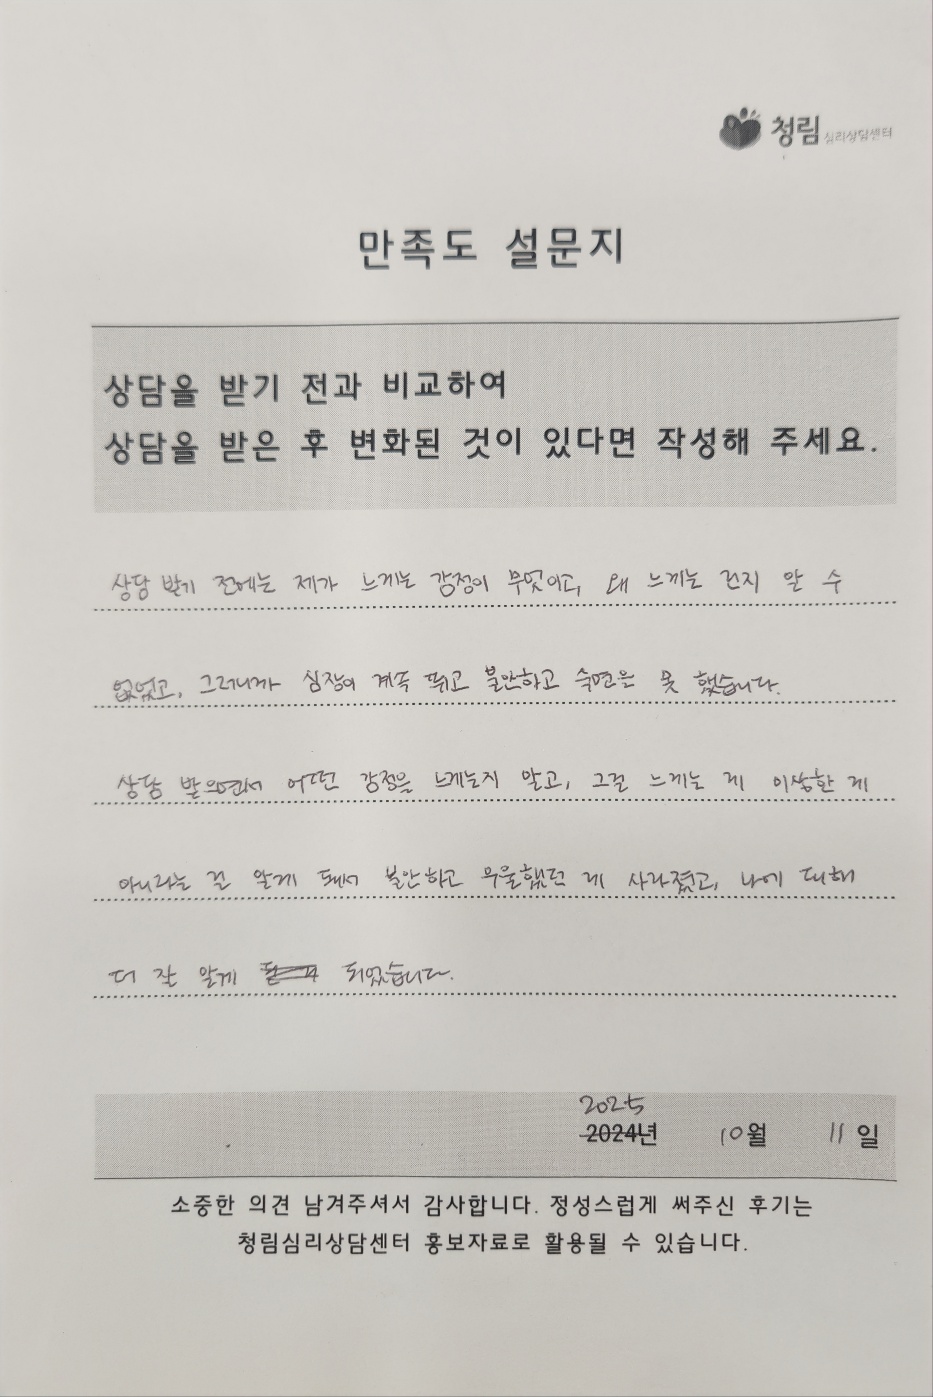 청림 심리상담센터
만족도 설문지
상담을 받기 전과 비교하여
상담을 받은 후 변화된 것이 있다면 작성해 주세요.
상담 받기 전에는 제가 느끼는 감정이 무엇이고, 왜 느끼는 건지 알 수
없었고, 그러니까 심장이 계속 뛰고 불안하고 숙면은 못 했습니다.
상담 받으면서 어떤 감정을 느끼는지 알고, 그걸 느끼는 게 이상한 게
아니라는 걸 알게 돼서 불안하고 우울했던 게 사라졌고, 나에 대해
더 잘 알게 되었습니다.
2025
2024년 10월 11일
소중한 의견 남겨주셔서 감사합니다. 정성스럽게 써주신 후기는
청림심리상담센터 홍보자료로 활용될 수 있습니다.